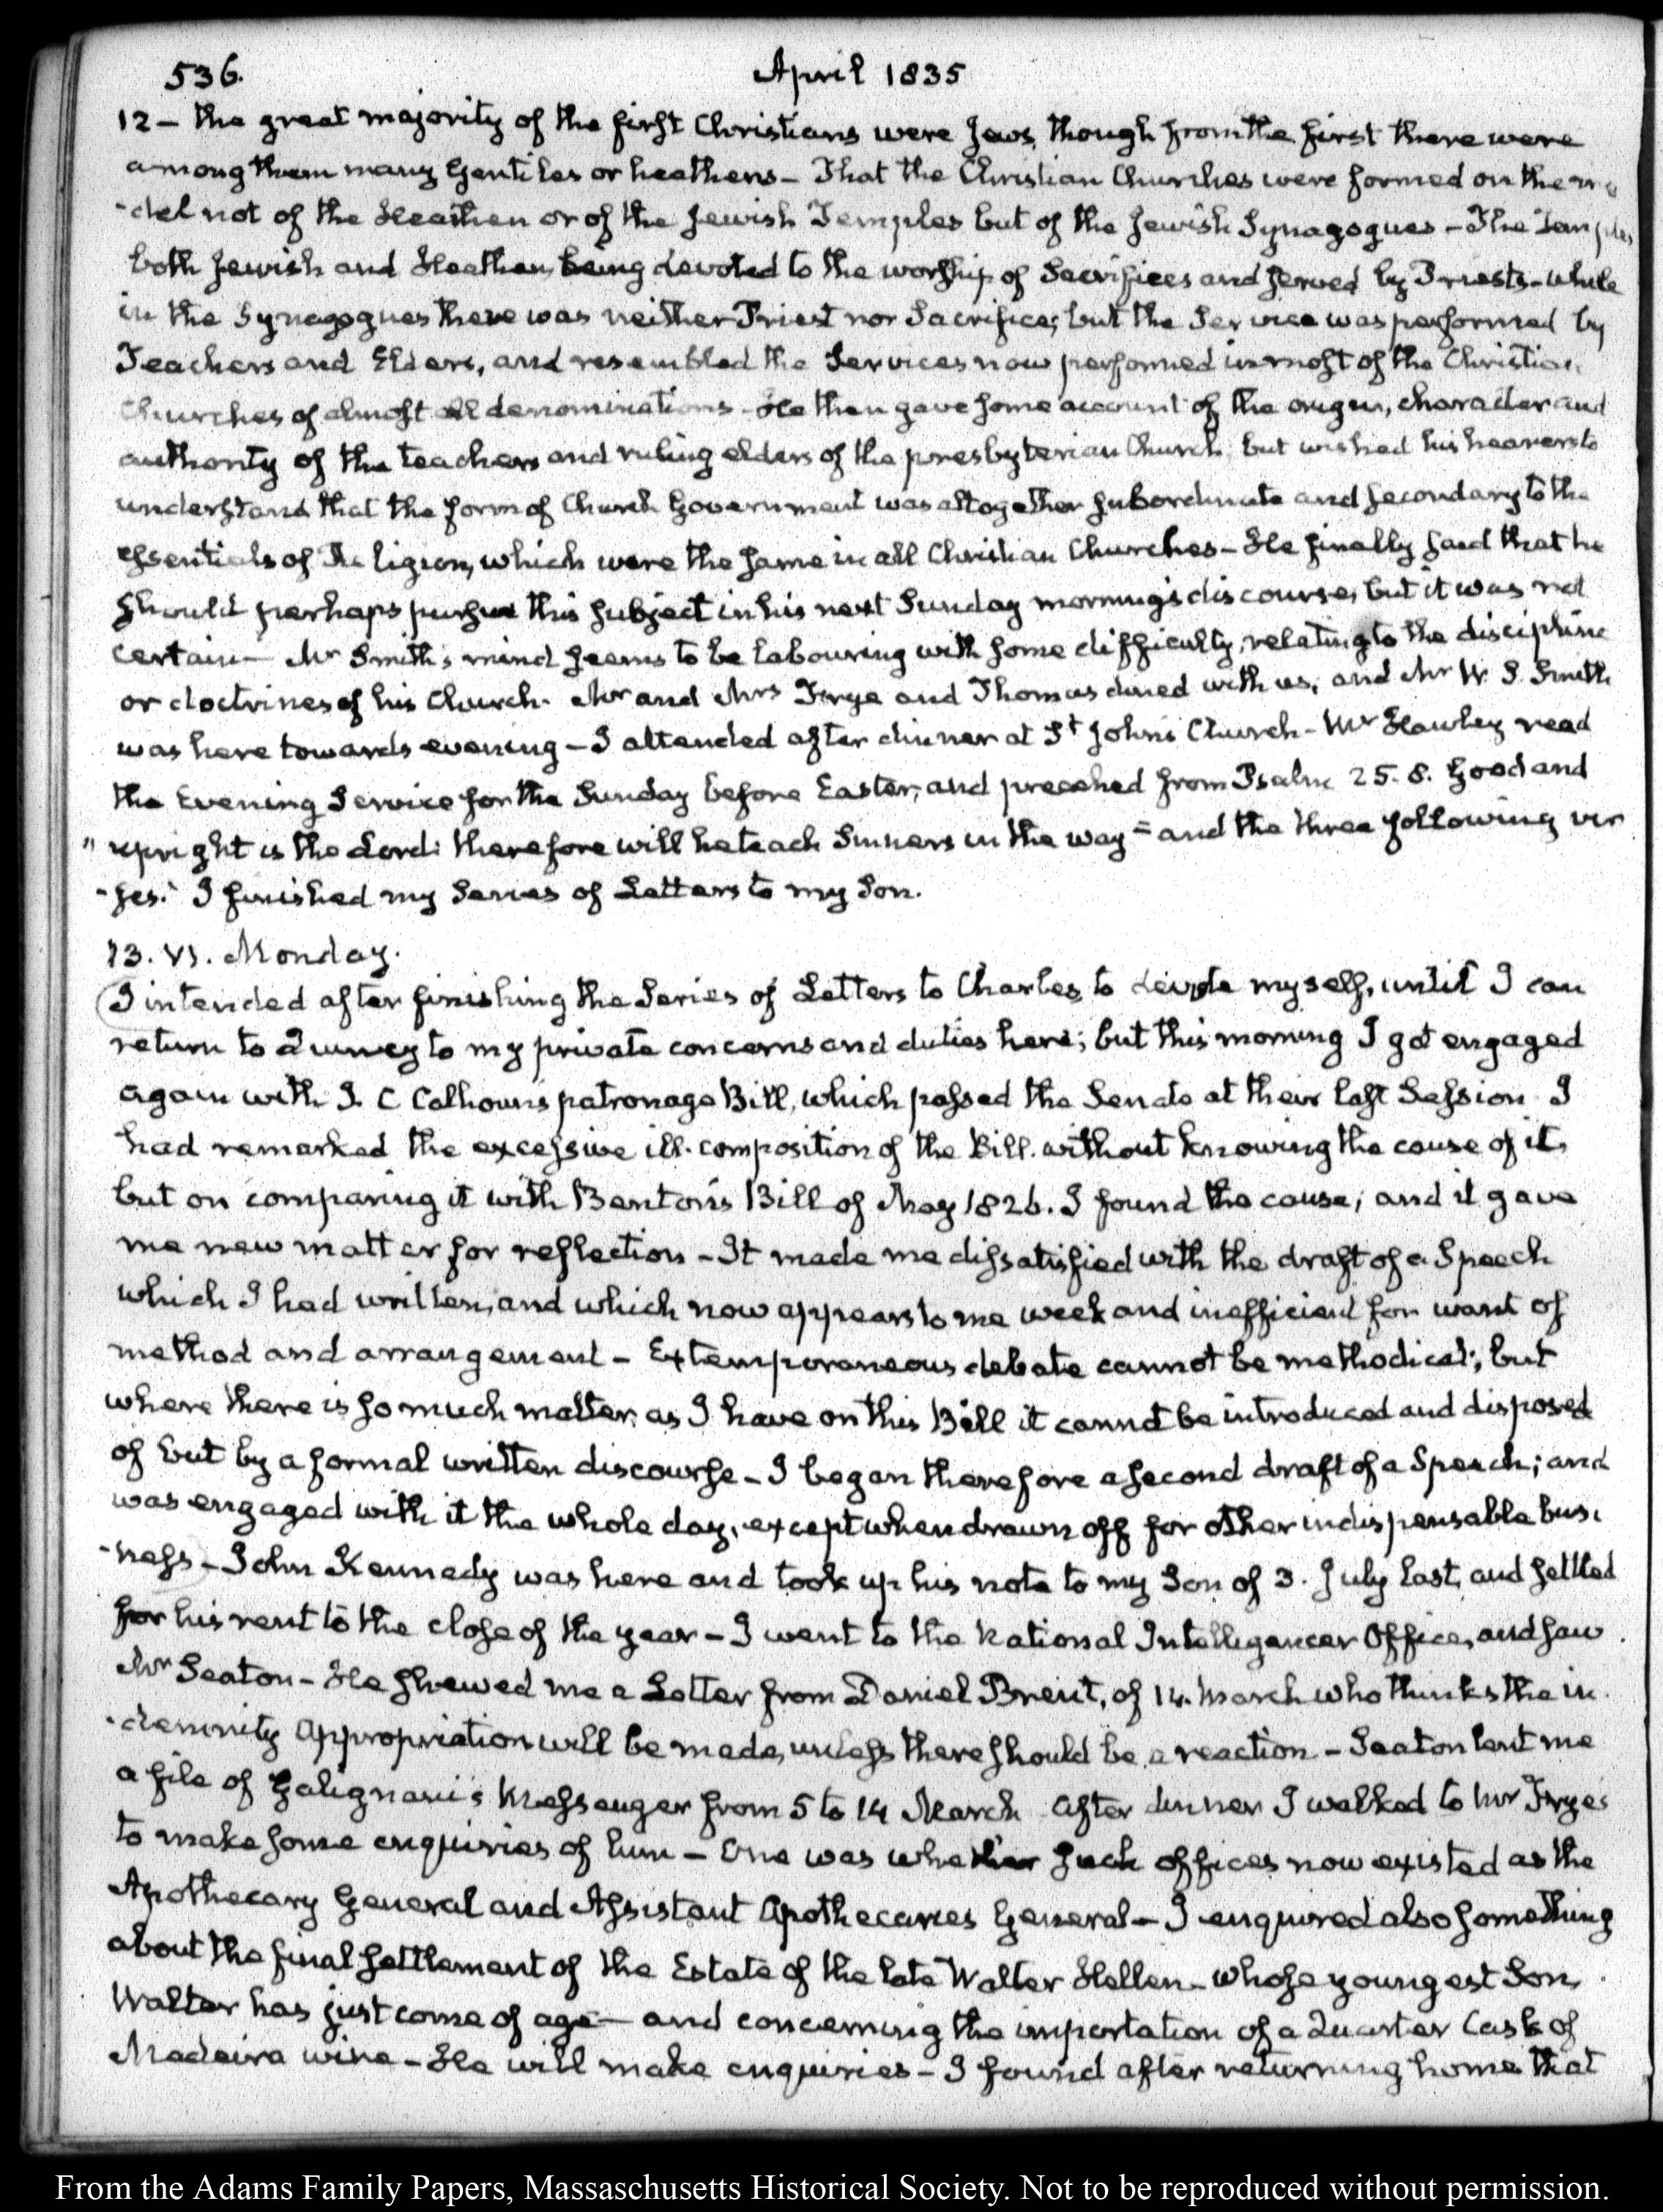 536.
April 1835
12 – the great majority of the first Christians were Jews, though from the first there were
among them many Gentiles or heathens – That the Christian Churches were formed on the mo
-del not of the Heathen or of the Jewish Temples but of the Jewish Synagogues – The Temples
both Jewish and Heathen being devoted to the worship of Sacrifices and served by Priests – while
in the Synagogues there was neither Priest nor Sacrifice; but the Service was performed by
Teachers and Elders, and resembled the Services now performed in most of the Christian
Churches of almost all denominations – He then gave some account of the origin, character and
authority of the teachers and ruling elders of the presbyterian Church; but wished his hearers to
understand that the form of Church Government was altogether subordinate and secondary to the
essentials of Religion, which were the same in all Christian Churches – He finally said that he
should perhaps pursue this subject in his next Sunday morning's discourse, but it was not
certain – Mr Smith's mind seems to be labouring with some difficulty, relating to the discipline
or doctrines of his Church. Mr and Mrs Frye and Thomas dined with us, and Mr W. S. Smith
was here towards evening – I attended after dinner at St Johns Church – Mr Hawley read
the Evening Service for the Sunday before Easter, and preached from Psalm 25. 8. Good and
" upright is the Lord: therefore will he teach Sinners in the way" – and the three following ver
-ses. I finished my Series of Letters to my Son.
13. VI. Monday.
I intended after finishing the Series of Letters to Charles, to devote myself, until I can
return to Quincy to my private concerns and duties here; but this morning I got engaged
again with J. C Calhoun's patronage Bill, which passed the Senate at their last Session. I
had remarked the excessive ill-composition of the Bill, without knowing the cause of it,
but on comparing it with Benton's Bill of May 1826. I found the cause; and it gave
me new matter for reflection – It made me dissatisfied with the draft of a Speech
which I had written, and which now appears to me weak and inefficient for want of
method and arrangement – Extemporaneous debate cannot be methodical; but
where there is so much matter, as I have on this Bill it cannot be introduced and disposed
of but by a formal written discourse – I began therefore a second draft of a Speech; and
was engaged with it the whole day, except when drawn off for other indispensable busi
-ness – John Kennedy was here and took up his note to my Son of 3. July last, and settled
for his rent to the close of the year – I went to the National Intelligencer Office, and saw
Mr Seaton – He shewed me a Letter from Daniel Brent, of 14. March who thinks the in
-demnity Appropriation will be made, unless there should be a reaction – Seaton lent me
a file of Galignani's Messenger from 5 to 14 March. After dinner I walked to Mr Frye's
to make some enquiries of him – One was whether such offices now existed as the
Apothecary General and Assistant Apothecaries General – I enquired also something
about the final settlement of the Estate of the late Walter Hellen – whose youngest Son,
Walter has just come of age – and concerning the importation of a Quarter Cask of
Madeira wine – He will make enquiries – I found after returning home that
From the Adams Family Papers, Massachusetts Historical Society. Not to be reproduced without permission.